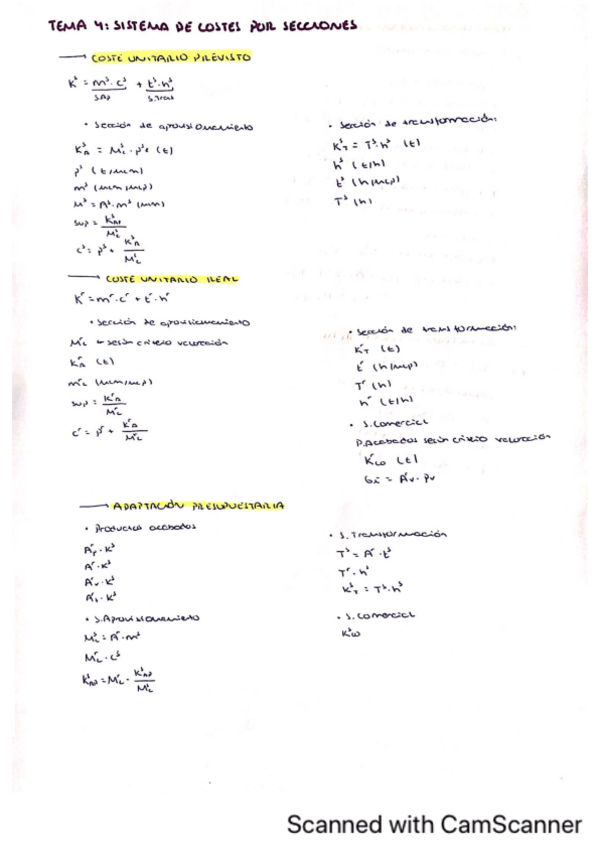 TEMA 4: SISTEMA DE COSTES POR SECCIONES
COSTE UNITARIO PREVISTO
K³ = m³·c³ + t³·h³
S.Ap S.Trans
• Sección de aprovisionamiento
K³A = M³c · p³c (€)
p³ (€/um)
m³ (um/up)
M³ = A³·m³ (um)
Sup = K³A / M³c
c³ = p³ + K³A / M³c
• Sección de transformación:
K³T = T³·h³ (€)
h³ (€/h)
t³ (h/up)
T³ (h)
COSTE UNITARIO REAL
Kʳ = mʳ·cʳ + tʳ·hʳ
• Sección de aprovisionamiento
Mʳc ← según criterio valoración
KʳA (€)
Sup = KʳA / Mʳc
cʳ = pʳ + KʳA / Mʳc
• Sección de transformación:
KʳT (€)
tʳ (h/up)
Tʳ (h)
hʳ (€/h)
• S. Comercial
P. Acabados según criterio valoración
Kʳco (€)
ADAPTACIÓN PRESUPUESTARIA
• Productos acabados
Aʳ·K³
Aʳv·K³
• S. Aprovisionamiento
M³c = Aʳ·m³
Mʳc·c³
• S. Transformación
T³ = Aʳ·t³
Tʳ·h³
K³T = T³·h³
• S. Comercial
K³co
Scanned with CamScanner